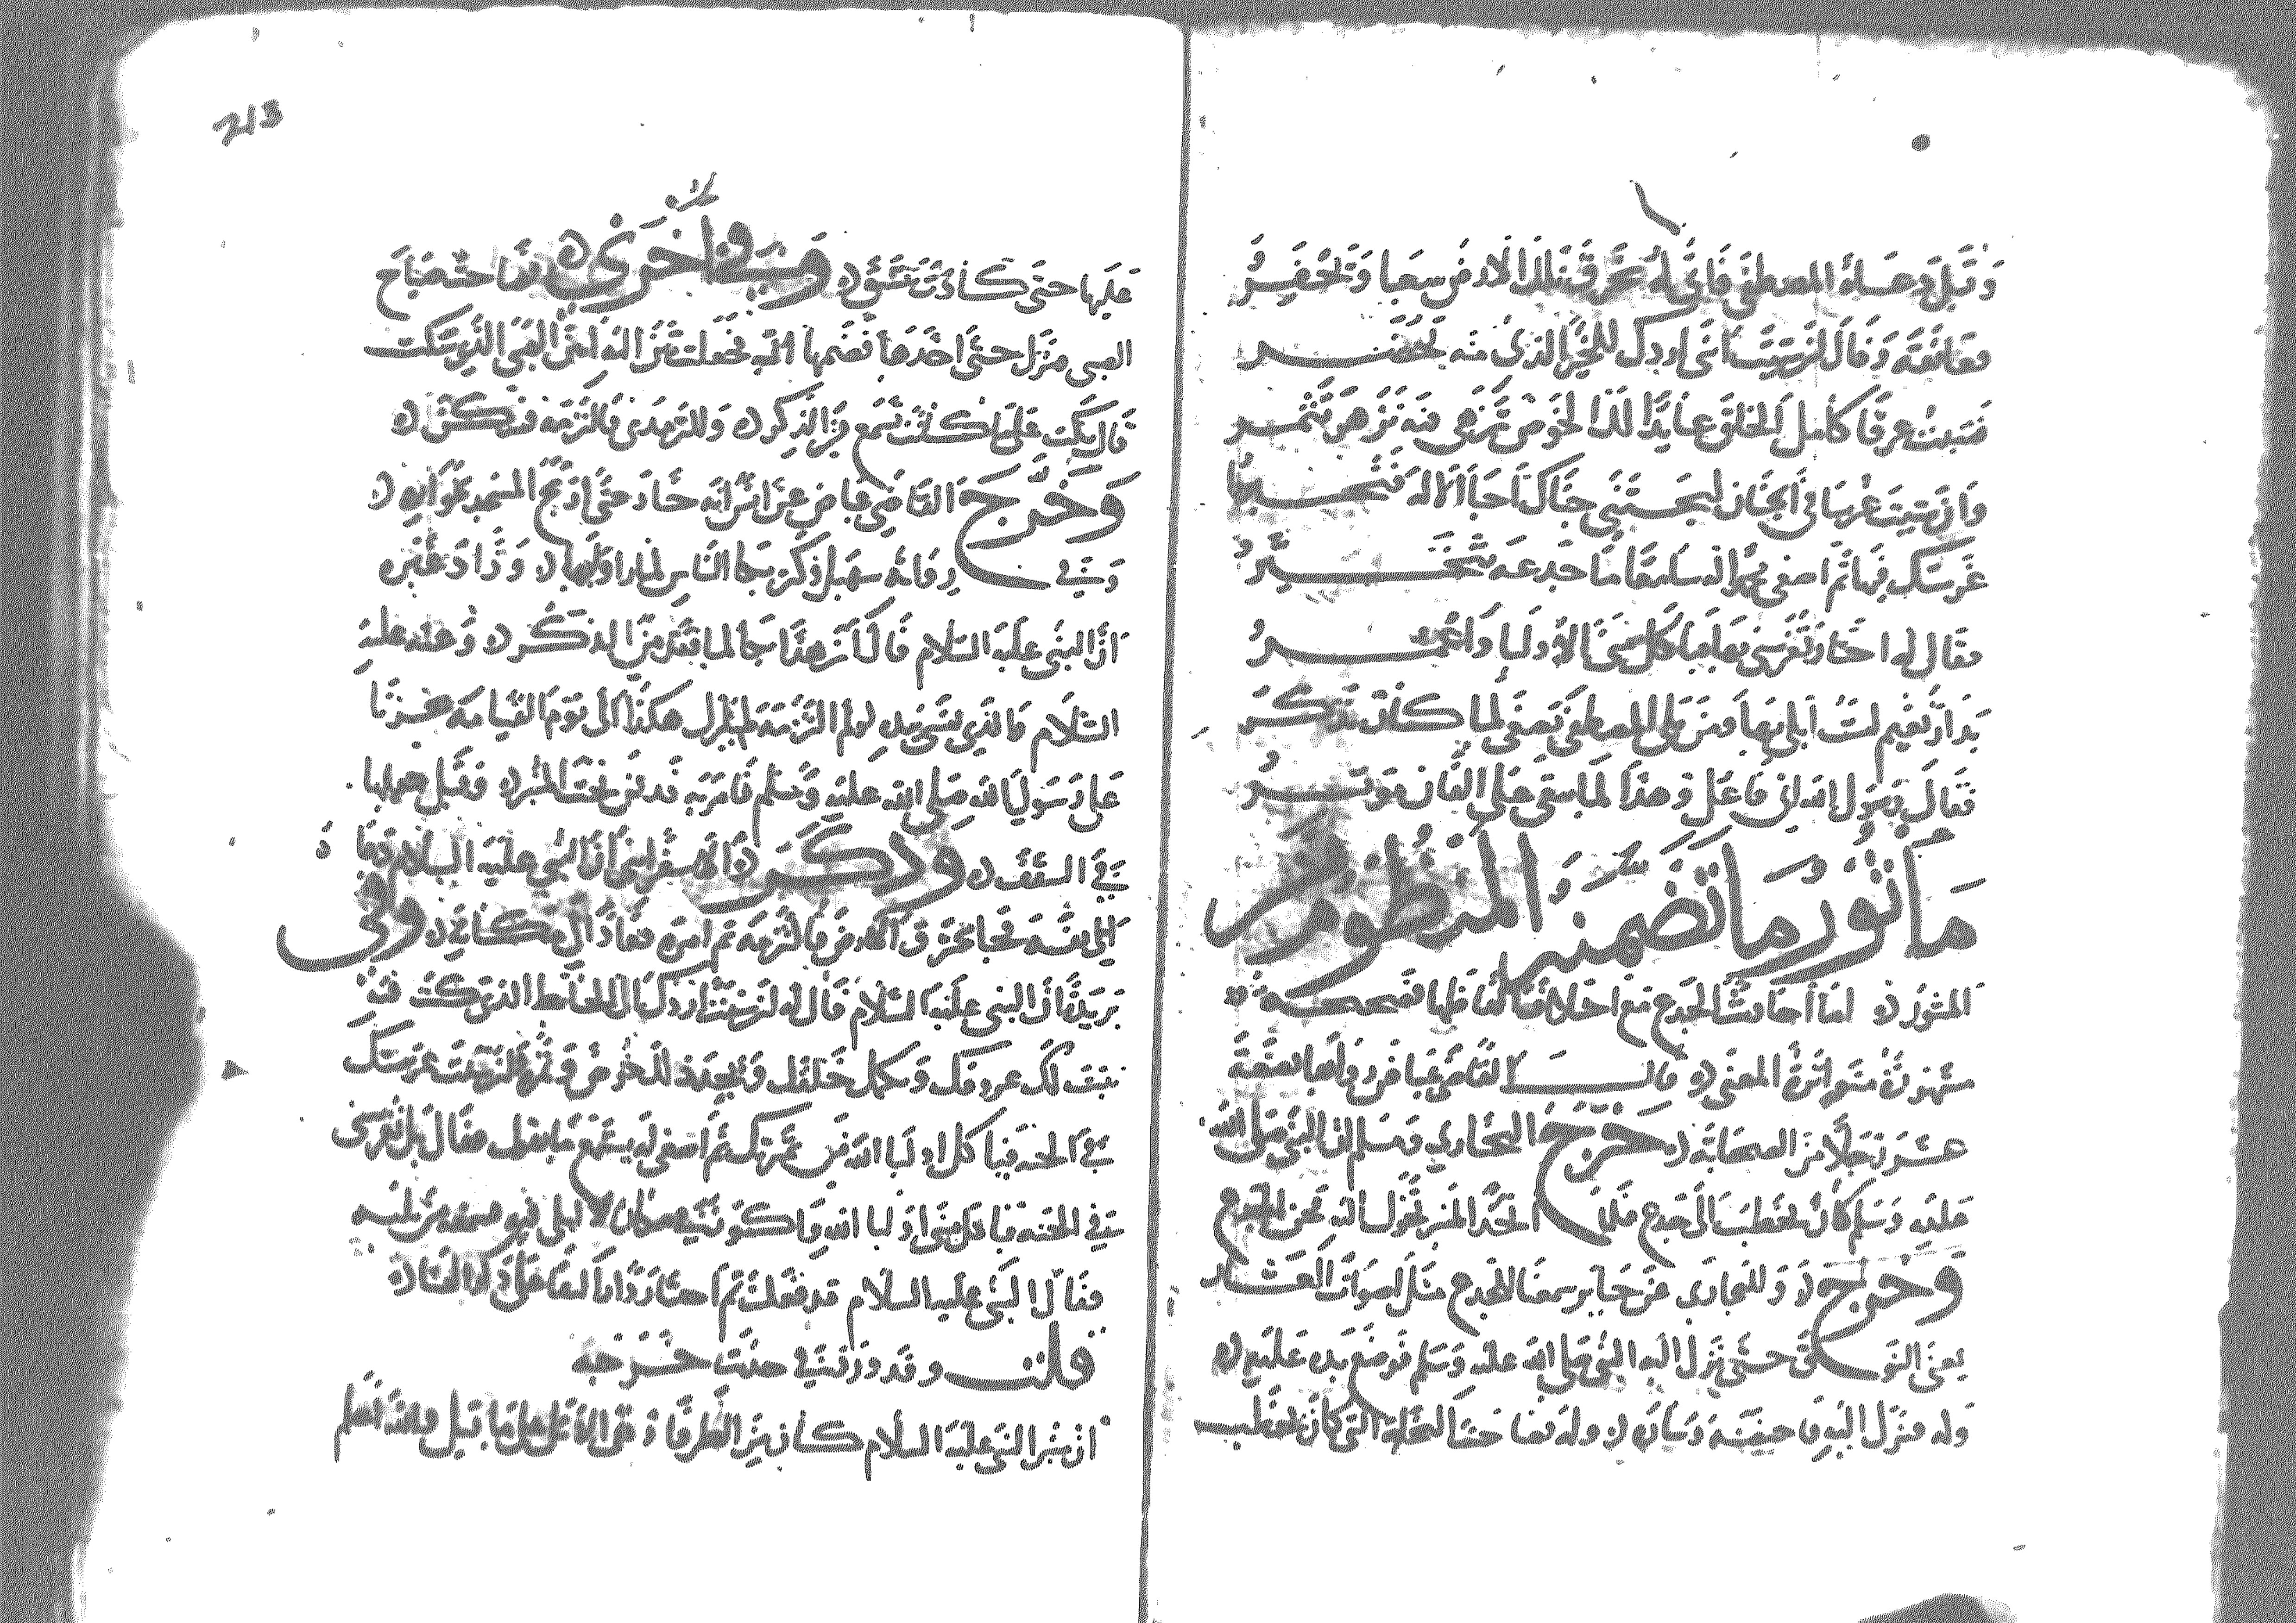 وقيل دعاه المصطفى فأتى له يخرق تلك الارض سعيا ويحفر
فعانقه وقال لئن شيت اني اردك للحير الذي منه تحضر
فنبت عرقا كامل الخلق عايدا لذا الخوص تزهى فيه تزهر تثمر
وان شيت غرسا في الجنان ليجتني جناك احبا الاله فتخير
غرسك فيها ثم اصغى محمد اليه سامعا ما جذعه يتخير
فقال له اختار تغرسني بها فيأكل مني الاوليا واعمر
بدار نعيم لست ابلى بها ومن يلي المصطفى يصغى لما كان تذكر
فقال رسول الله اني فاعل وهذا لما يبقى على الفان موثر
مأثور ما تضمنه المنظوم
المنثور اما احاديث الجذع مع اختلاف الفاظها فصحيحة
مشهورة متواترة المعنى قال القاضي عياض رواها بضعة
عشر رجلا من الصحابة خرج البخاري ومسلم ان النبي صلى الله
عليه وسلم كان يخطب الى جذع فلما اتخذ المنبر تحول اليه فحن الجذع
وخرج وللبخاري عن جابر سمعنا للجذع مثل اصوات العشار
يعني النوق حتى نزل اليه النبي صلى الله عليه وسلم فوضع يده عليه
وله فنزل اليه فاحتضنه وسارّه وله ايضا حنّ النخلة التي كان يخطب
213
عليها حتى كادت تنشق وفي اخرى فصاحت صياح
الصبي فنزل حتى اخذها فضمها اليه فجعلت تئن انين الصبي الذي يسكت
قال بكت على ما كانت تسمع من الذكر وللترمذي فالتزمه فسكن
وخرج القاضي عياض عن انس انه خار حتى ارتج المسجد بخواره
وفي رواية سهيل وكثر بكا الناس لما راوا بها وزاد غيره
ان النبي عليه السلام قال ان هذا بكا لما فقد من الذكر وعنه عليه
السلام والذي نفسي بيده لو لم التزمه لم يزل هكذا الى يوم القيامة تحزنا
على رسول الله صلى الله عليه وسلم فامر به فدفن تحت المنبر وقيل جعلها
في السقف وذكر الاسفرايني ان النبي عليه السلام دعا
الى نفسه فجا يخرق الارض فالتزمه ثم امره فعاد الى مكانه وفي
بريدة ان النبي عليه السلام قال له ان شئت اردك الى الحائط الذي كنت فيه
تنبت لك عروقك ويكمل خلقك ويجدد لك خوص وثمر وان شئت غرستك
في الجنة فياكل اوليا الله من ثمرتك ثم اصغى له يستمع ما يقول فقال بل تغرسني
في الجنة فياكل مني اوليا الله واكون في مكان لا ابلى فيه فسمعه من يليه
فقال النبي عليه السلام قد فعلت ثم اختار دار البقا على دار الفنا
قلت وقد ورد في حديث خرجه
ان منبر النبي عليه السلام كان من الطرفا وهي الاثل على ما قيل والله اعلم